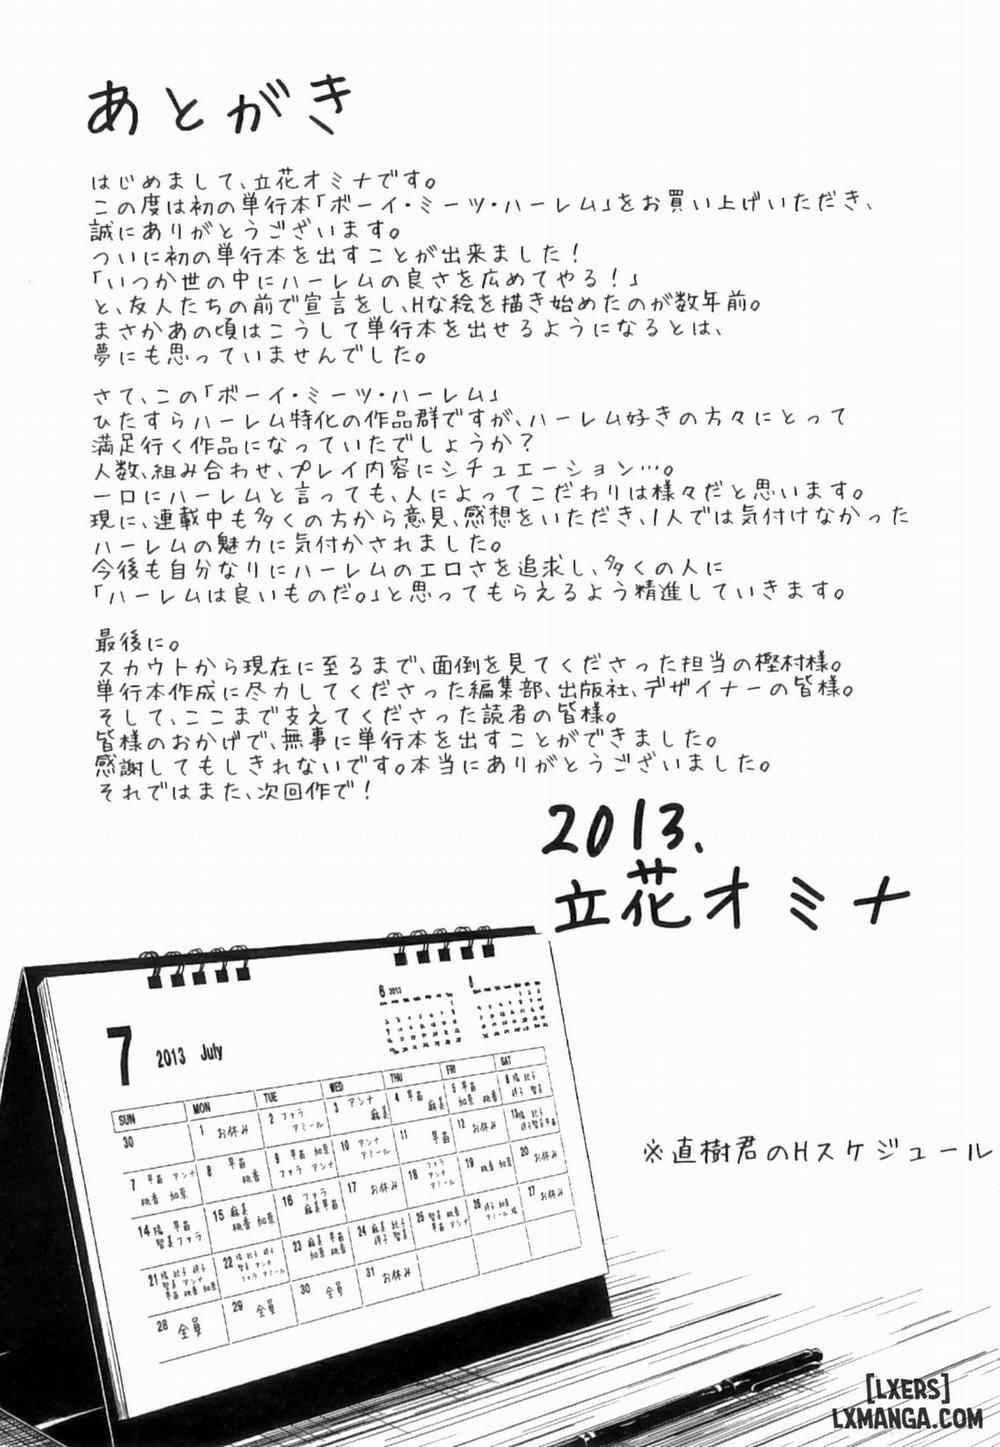 あとがき
はじめまして、立花オミナです。
この度は初の単行本「ボーイ・ミーツ・ハーレム」をお買い上げいただき、
誠にありがとうございます。
ついに初の単行本を出すことが出来ました！
「いつか世の中にハーレムの良さを広めてやる！」
と、友人たちの前で宣言をし、Hな絵を描き始めたのが数年前。
まさかあの頃はこうして単行本を出せるようになるとは、
夢にも思っていませんでした。
さて、この「ボーイ・ミーツ・ハーレム」
ひたすらハーレム特化の作品群ですが、ハーレム好きの方々にとって
満足行く作品になっていたでしょうか？
人数、組み合わせ、プレイ内容にシチュエーション…。
一口にハーレムと言っても、人によってこだわりは様々だと思います。
現に、連載中も多くの方から意見、感想をいただき、1人では気付けなかった
ハーレムの魅力に気付かされました。
今後も自分なりにハーレムのエロさを追求し、多くの人に
「ハーレムは良いものだ。」と思ってもらえるよう精進していきます。
最後に。
スカウトから現在に至るまで、面倒を見てくださった担当の樫村様。
単行本作成に尽力してくださった編集部、出版社、デザイナーの皆様。
そして、ここまで支えてくださった読者の皆様。
皆様のおかげで、無事に単行本を出すことができました。
感謝してもしきれないです。本当にありがとうございました。
それではまた、次回作で！
2013.
立花オミナ
6 2013 8
7 2013 July
SUN MON TUE WED THU FRI SAT
30
1 お休み
2 ファラ アミール
3 アンナ 麻美
4 早苗 麻美
5 早苗 加奈 桃香
7 早苗 アンナ 桃香 加奈
8 早苗 桃香
9 早苗 加奈 ファラ アンナ
10 アンナ アミール
11 早苗
12 お休み
14 早苗 智美 ファラ
15 麻美 桃香 加奈
16 ファラ 麻美 早苗
17 お休み
18 ファラ アンナ アミール
19 桃香 加奈
20 お休み
23 麻美 早苗 加奈 桃香
27 お休み
28 全員
29 全員
30 全員
31 お休み
※直樹君のHスケジュール
[LXERS]
LXMANGA.COM